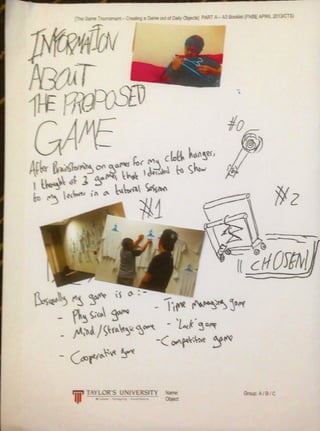 [The Game Tournament – Creating a Game out of Daily Objects] PART A – A3 Booklet (FNBE APRIL 2013/CTS)
INFORMATION
ABOUT
THE PROPOSED
GAME
After Brainstorming on games for my cloth hanger,
I thought of 3 games that I decided to show
to my lecturer in a tutorial session
#0
#1
#2
CHOSEN
Basically my game is a :-
- Physical game
- Mind / Strategic game
- Cooperative game
- Time managing game
- 'Luck' game
- Competitive game
TAYLOR'S UNIVERSITY
Name:
Object:
Group: A / B / C